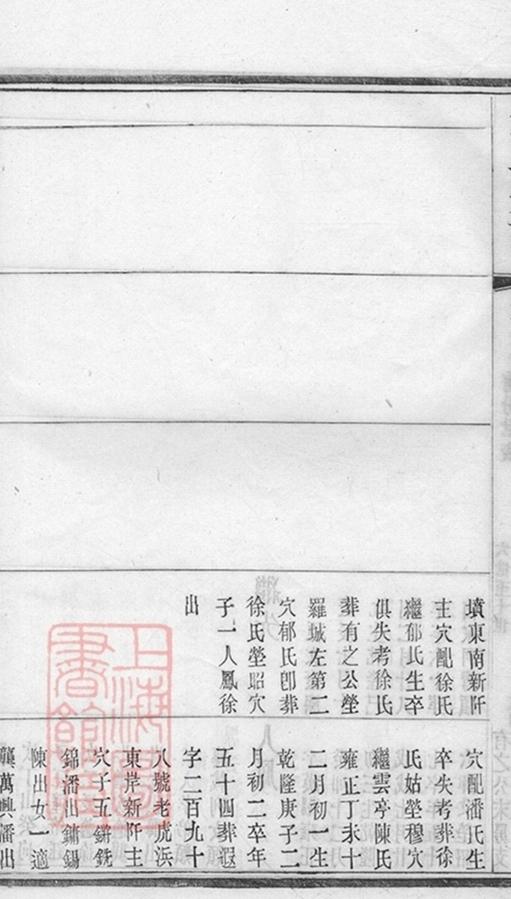 墳東南新阡
主穴配徐氏
繼郁氏生卒
俱失考徐氏
葬有之公塋
羅城左第二
穴郁氏卽葬
徐氏塋昭穴
子一人鳳徐
出
穴配潘氏生
卒失考葬徐
氏姑塋穆穴
繼雲亭陳氏
雍正丁未十
二月初一生
乾隆庚子二
月初二卒年
五十四葬遐
字二百九十
八號老虎浜
東岸新阡主
穴子五鏘銑
錦潘出鏞錫
陳出女一適
龔萬興潘出
上海圖書館藏